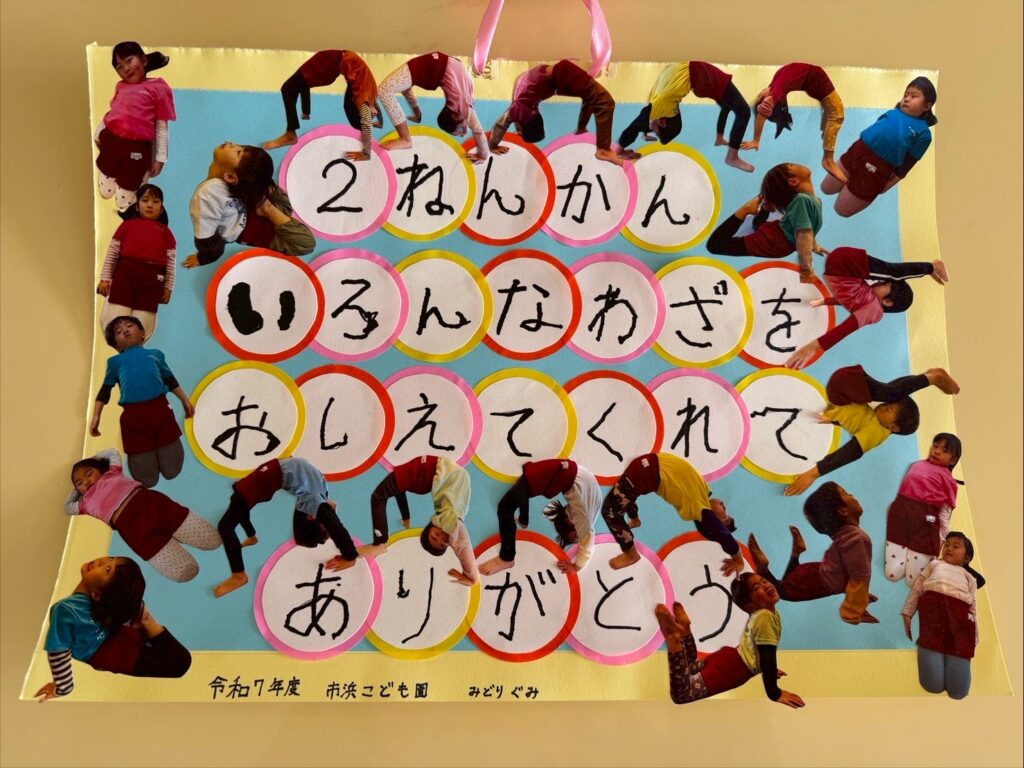 2ねんかん
いろんなわざを
おしえてくれて
ありがとう
令和7年度 市浜こども園 みどりぐみ